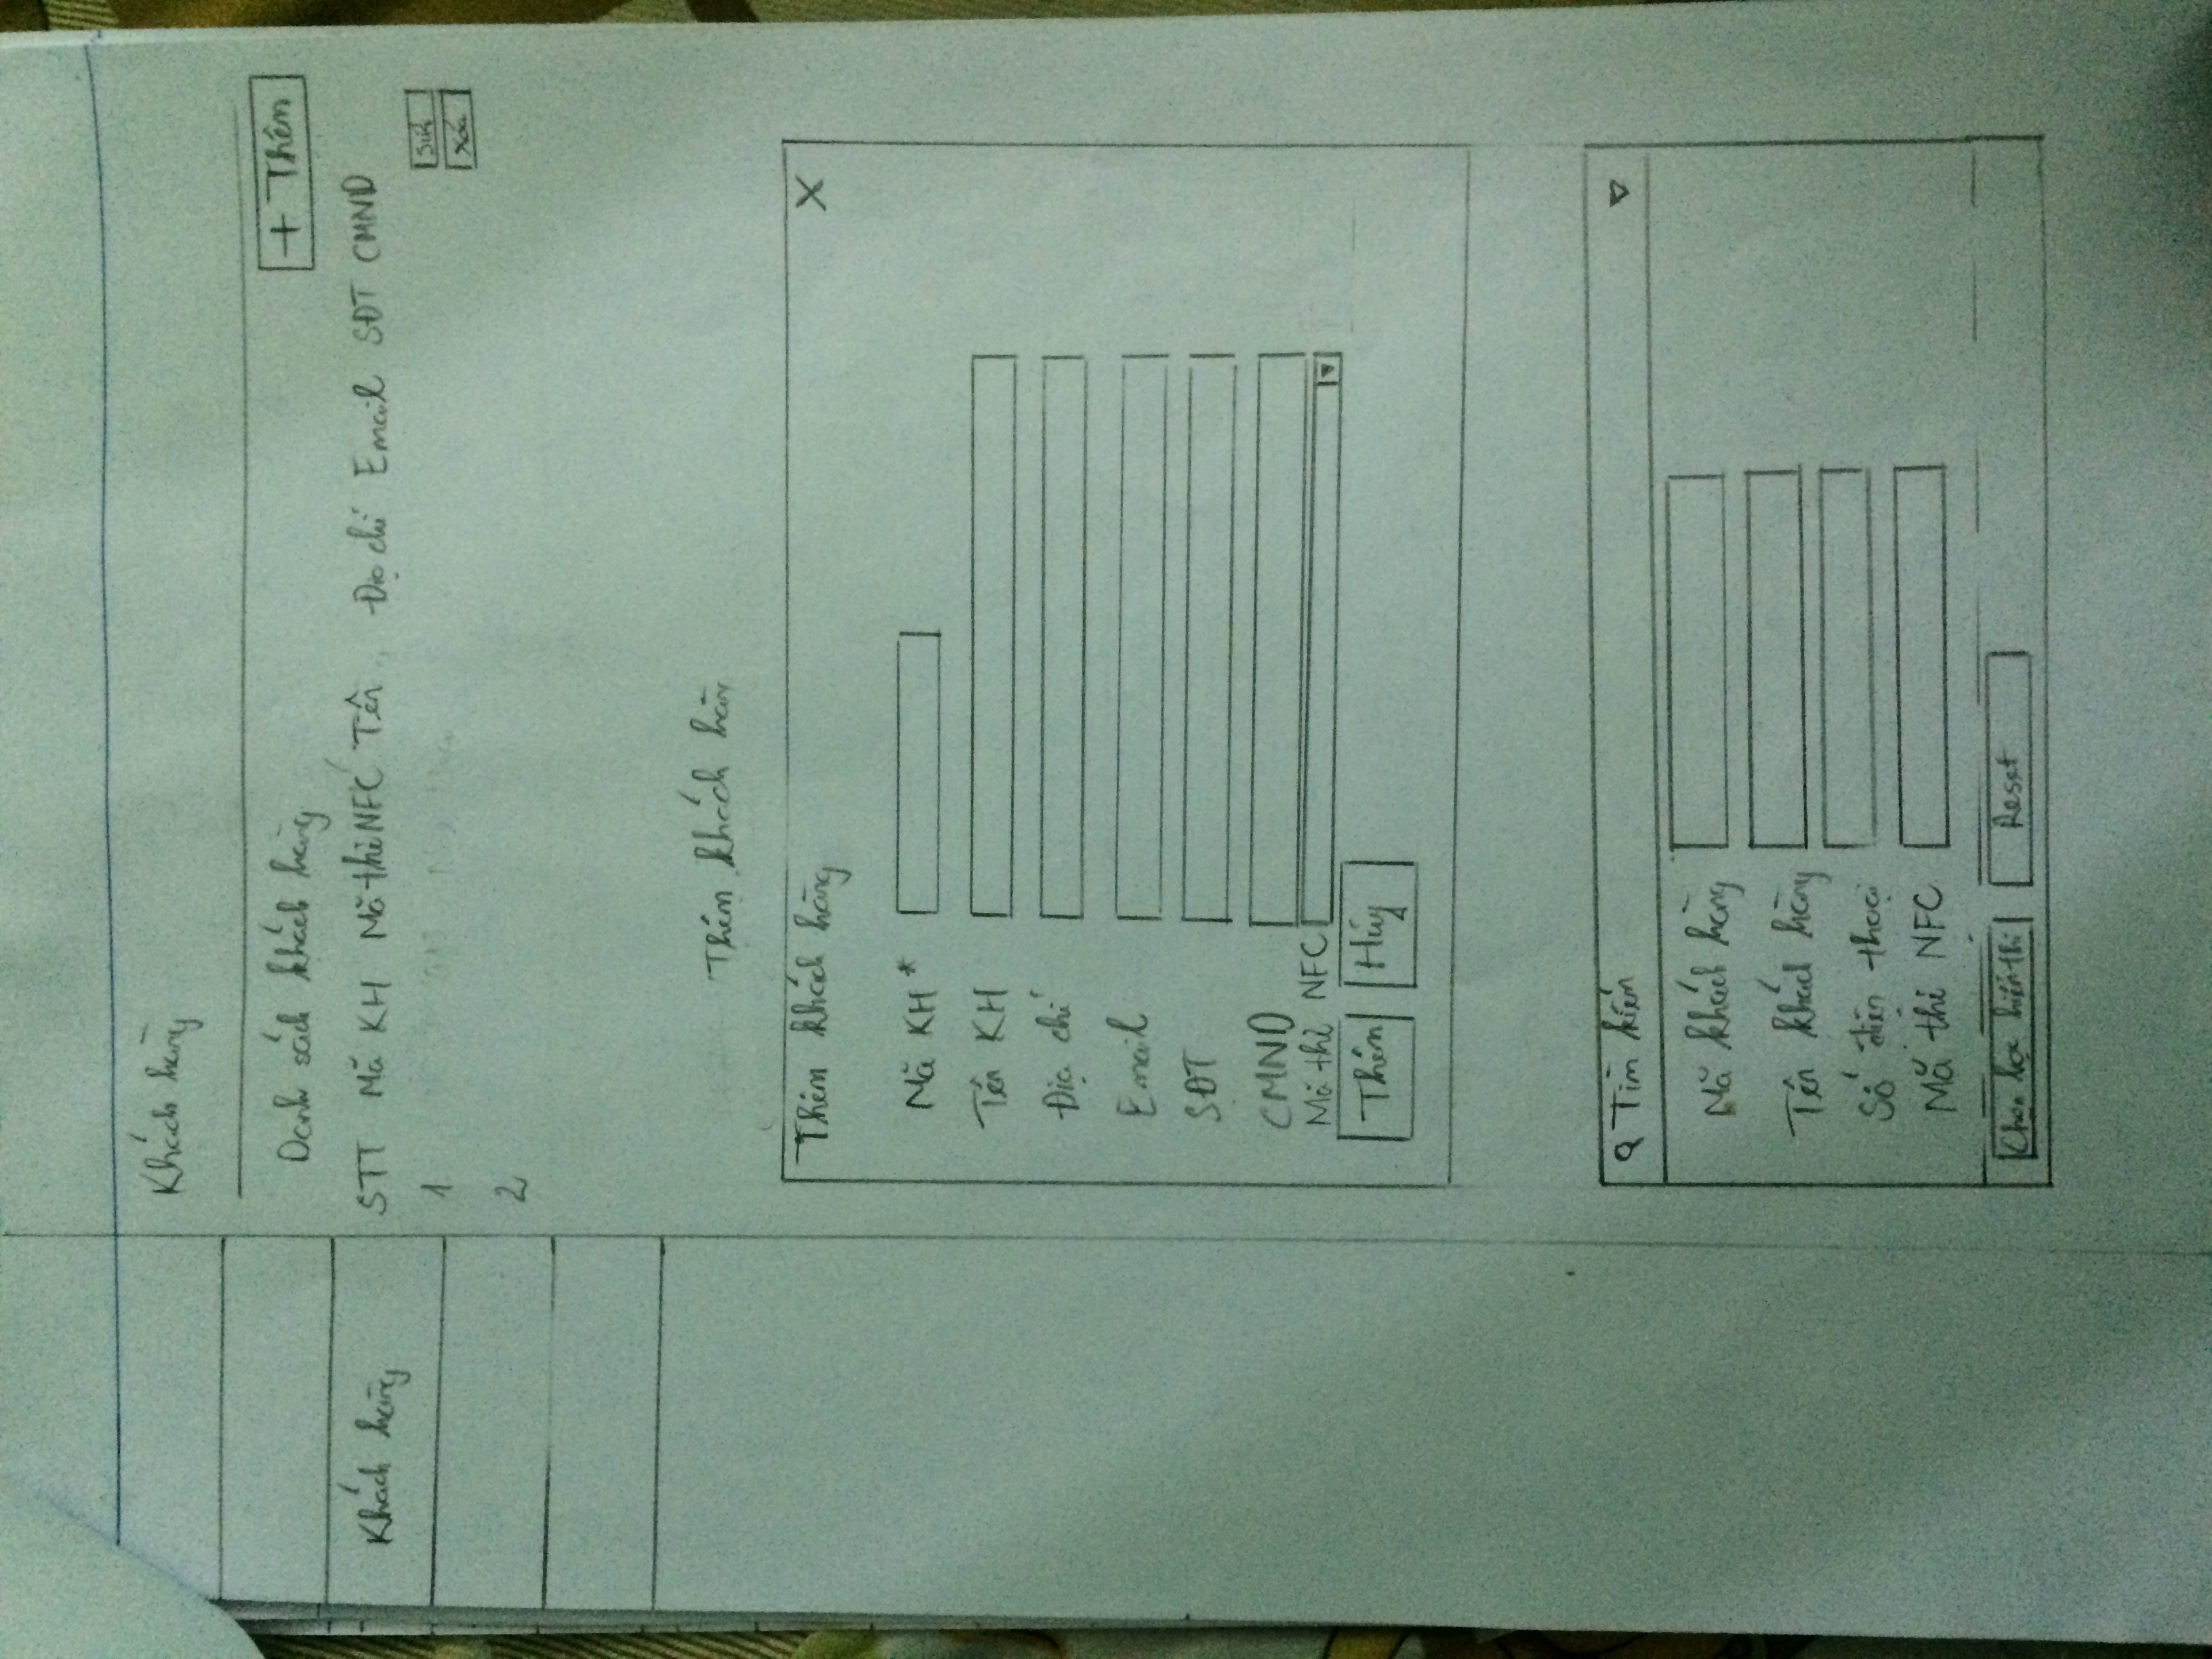 Khách hàng
Danh sách khách hàng
+ Thêm
Khách hàng
STT Mã KH Mã thẻ NFC Tên Địa chỉ Email SĐT CMND
1
Sửa
Xóa
2
Thêm khách hàng
Thêm khách hàng X
Mã KH *
Tên KH
Địa chỉ
Email
SĐT
CMND
Mã thẻ NFC
Thêm Hủy
Tìm kiếm
Mã khách hàng
Tên khách hàng
Số điện thoại
Mã thẻ NFC
Chọn lọc hiển thị Reset